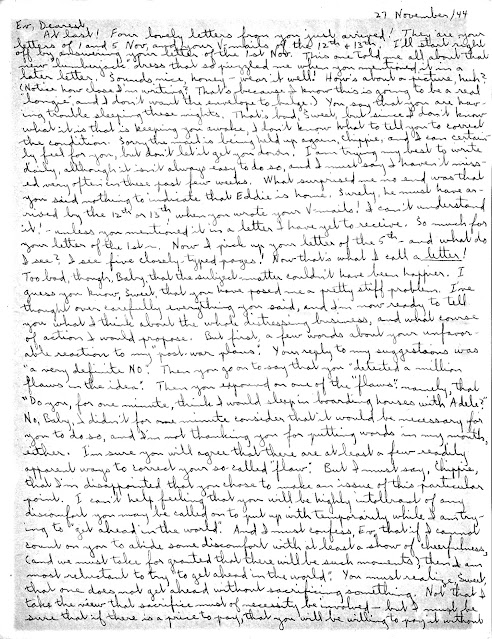 27 November/44
Ev, Dearest,
At last! Four lovely letters from you just arrived! They are your
letters of 1 and 5 Nov, and your Vmails of the 12th & 13th. I'll start right
off by answering your letter of the 1st Nov. This one told me all about that
new "slumberjack" dress that so puzzled me when you mentioned it in a
later letter. Sounds nice, honey - wear it well! How's about a picture, huh?
(Notice how close I'm writing? That's because I know this is going to be a real
'longie', and I don't want the envelope to bulge.) You say that you are hav-
ing trouble sleeping these nights. That's bad, Sweet, but since I don't know
what it is that is keeping you awake, I don't know what to tell you to correct
the condition. Sorry the mail is being held up again, Chippie, and I can certain-
ly feel for you, but don't let it get you down. I am trying my best to write
daily, although it isn't always easy to do so, and I must say I haven't miss-
ed very often in these past few weeks. What surprised me no end was that
you said nothing to indicate that Eddie is home. Surely, he must have ar-
rived by the 12th or 13th, when you wrote your Vmails! I can't understand
it! - unless you mentioned it in a letter I have yet to receive. So much for
your letter of the 1st. Now I pick up your letter of the 5th - and what do
I see? I see five closely-typed pages! Now that's what I call a letter!
Too bad, though, Baby, that the subject-matter couldn't have been happier. I
guess you know, Sweet, that you have posed me a pretty stiff problem. I've
thought over carefully everything you said, and I'm now ready to tell
you what I think about the whole distressing business, and what course
of action I would propose. But first, a few words about your unfavor-
able reaction to my post-war plans: Your reply to my suggestions was
"a very definite NO." Then you go on to say that you "detected a million
flaws in the idea." Then you expound on one of the "flaws", namely, that
"Do you, for one minute, think I would sleep in boarding houses with Adele?"
No, Baby, I didn't for one minute consider that it would be necessary for
you to do so, and I'm not thanking you for putting words in my mouth,
either. I'm sure you will agree that there are at least a few readily
apparent ways to correct your so-called "flaw". But I must say, Chippie,
that I'm disappointed that you chose to make an issue of this particular
point. I can't help feeling that you will be highly intolerant of any
discomfort you may be called on to put up with temporarily while I am try-
ing to "get ahead in the world". And I must confess, Ev, that if I cannot
count on you to abide some discomfort with at least a show of cheerfulness,
(and we must take for granted that there will be such moments) then I am
most reluctant to try to get ahead in the world. You must realize, Sweet,
that one does not get ahead without sacrificing something. Not that I
take the view that sacrifice must of necessity be involved - but I must be
sure that if there is a price to pay, that you will be willing to pay it without